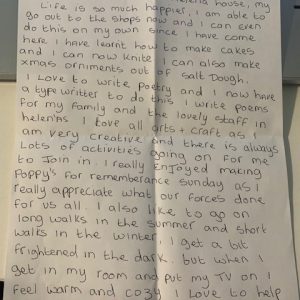 helena house, my
Life is so much happier, I am able to
go out to the shops now and I can even
do this on my own since I have come
here I have learnt how to make cakes
and I can now knit I can also make
xmas orniments out of Salt Dough.
I Love to write poetry and I now have
a type writter to do this I write poems
for my family and the lovely staff in
helen'as I love all arts + craft as I
am very creative and there is always
Lots of activities going on for me
to Join in. I really Enjoyed making
Poppy's for rememberance sunday as I
really appreciate what our forces done
for us all. I also like to go on
long walks in the summer and short
walks in the winter. I get a bit
frightened in the dark but when I
get in my room and put my TV on I
feel warm and cozy I Love to help